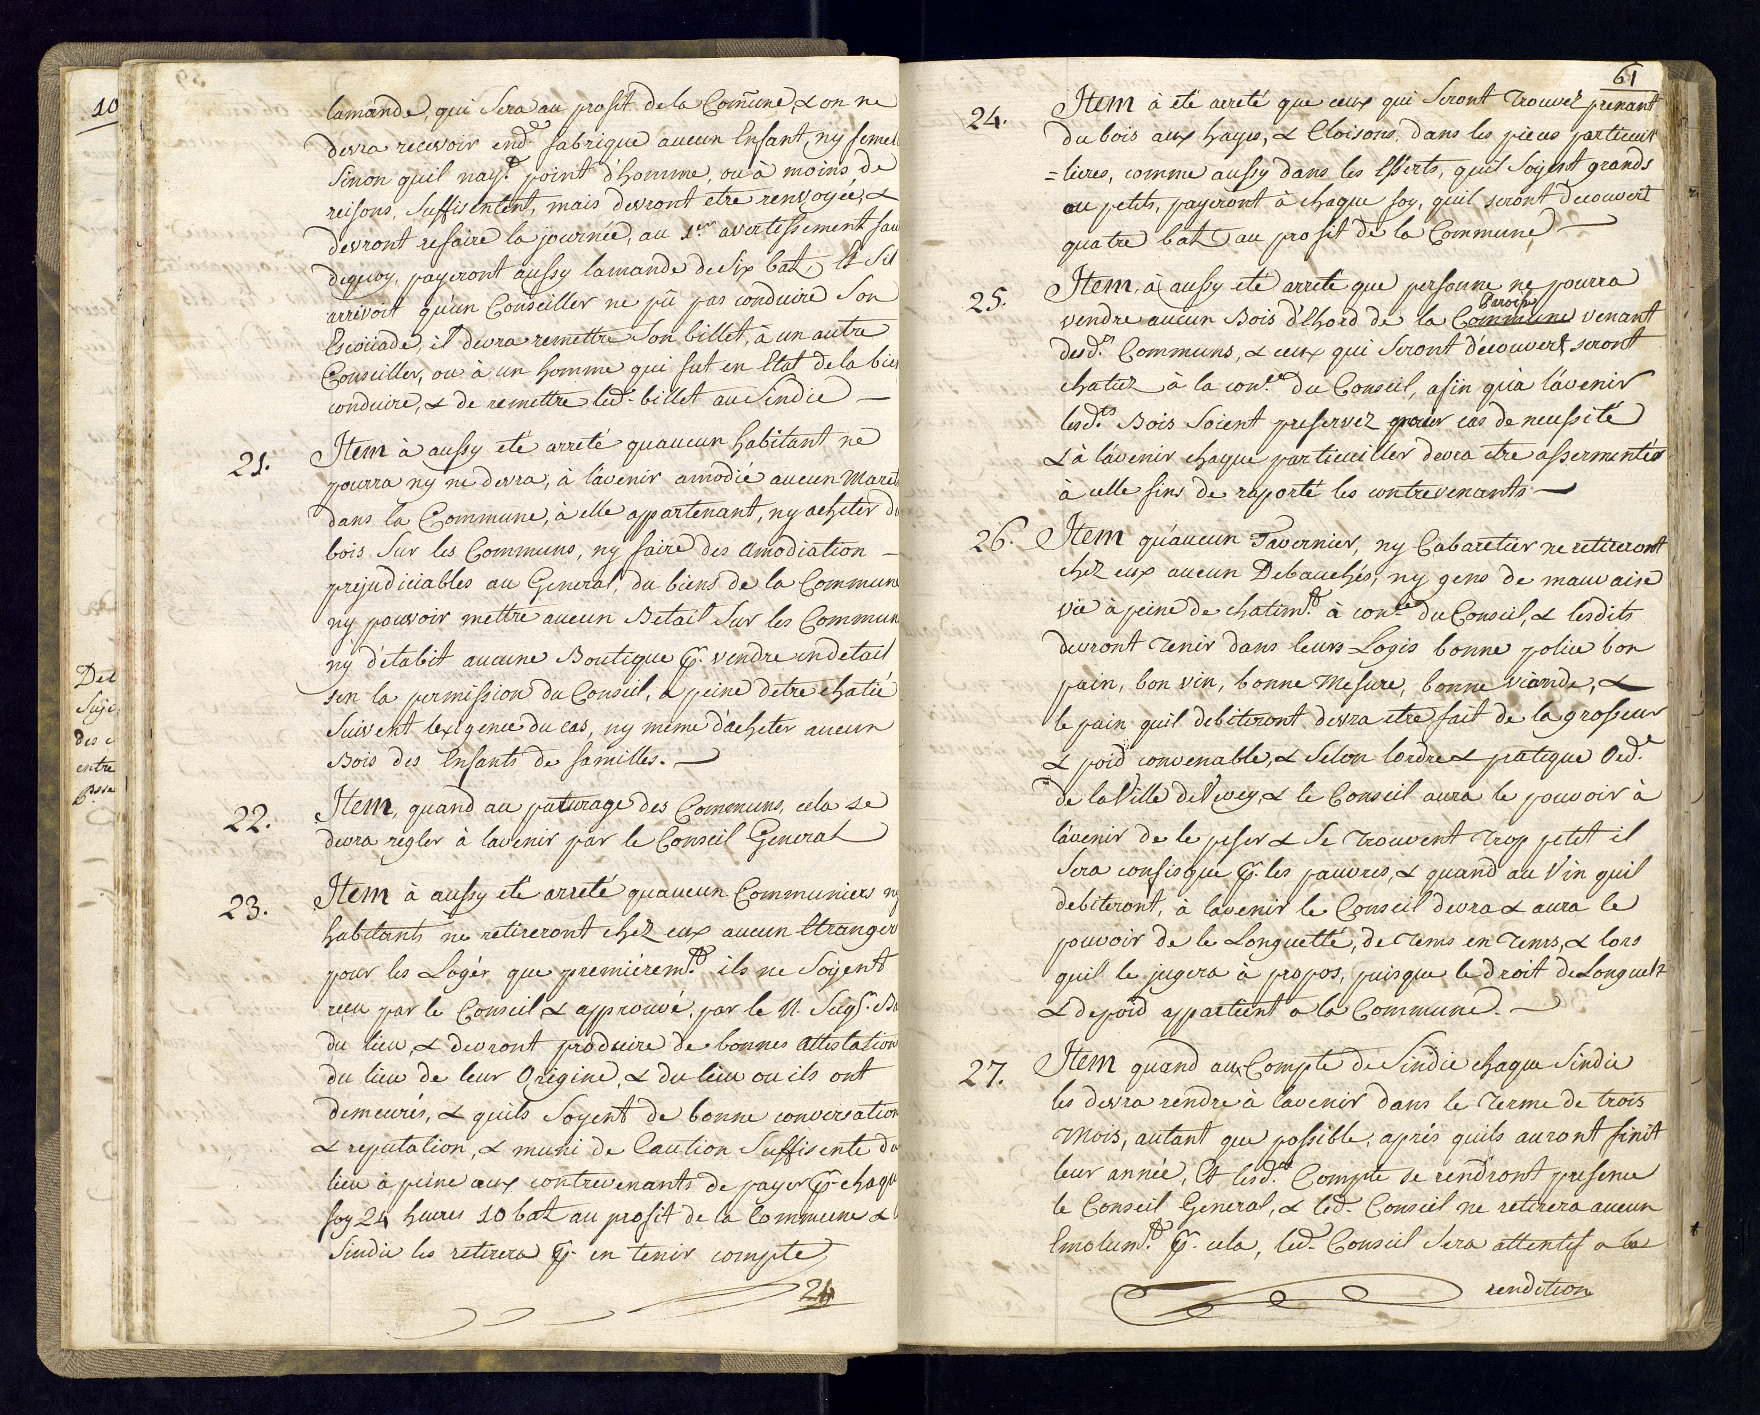 10
Det
Suje
des
entre
lamande, qui Sera au profit de la Com̃une & on ne
devra recevoir end.e fabrique aucun Enfant, ny femel
Sinon quil nay.t point d'homme, ou à moins de
reisons, Suffisentent, mais devront etre renvoyée, &
devront refaire la journée, au 1.er avertissement fau
dequoy, payeront aussy lamande de Six bat, Et Sil
arrivoit qu'un Conseiller ne pû pas conduire Son
Escoüade, il devra remettre Son billet, à un autre
Conseiller, ou à un homme qui fut en Etat de la bien
conduire, & de remettre led. billet au Sindic —
21.
Item à aussy eté arreté quaucun habitant ne
pourra ny ne devra, à lavenir amodié aucun Maret
dans la Commune, à elle appartenant, ny acheter du
bois Sur les Communs, ny faire des Amodiation —
prejudiciables au General, du biens de la Commune
ny pouvoir mettre aucun Betail Sur les Commun
ny d'etablit aucune Boutique p.r vendre en detail
sen la permission du Conseil, a peine detre chatié
Suivent lexigence du cas, ny méme d'acheter aucun
Bois des Enfants de familles. —
22.
Item, quand au paturage des Communs, cela se
devra regler à lavenir par le Conseil General
23.
Item à aussy eté arreté quaucun Communiers ny
habitants ne retireront chez eux aucun Etranger
pour les Logér que premiérem.t ils ne Soyent
reçu par le Conseil & approuvé, par le N. Sug.r Ba
du lieu, & devront produire de bonnes Attestation
du lieu de leur Origine, & du lieu ou ils ont
demeurés, & quils Soyent de bonne conversation
& reputation, & muni de Caution Suffisente du
lieu à peine aux contrevenants de payer p.r chaque
foy 24 heures 10 bat au profit de la Commune &
Sindic les retirera p.r en tenir compte
24
61
24.
Item à eté arreté que ceux qui Seront Trouvez prenant
du bois aux hayes, & Cloisons, dans les pieces particur
=lieres, comme aussy dans les Esserts, quil Soyent grands
ou petits, payeront à chaque foy, quil seront decouvert
quatre bat au profit de la Commune —
25.
Item, à aussy eté arreté que personne ne pourra
Paroisse
vendre aucun Bois d'hord de la Commune venant
desd.ts Communs, & ceux qui Seront découvert, seront
chatiez à la con.ce du Conseil, afin qu'a l'avenir
lesd.ts Bois Soient preservez pour cas de necessité
& à lavenir chaque particuiller devra etre assermentér
à celle fins de raporté les contrevenants —
26.
Item qu'aucun Tavernier, ny Cabaretier ne retireront
chez eux aucun Debauchés, ny gens de mauvaise
vie à peine de chatim.t à con.ce du Conseil, & lesdits
devront Tenir dans leurs Logis bonne police bon
pain, bon vin, bonne Mesure, bonne viande, &
le pain quil debiteront devra etre fait de la grosseur
& poid convenable, & Selon lordre & pratique Ord.e
de la Ville de Vevey, & le Conseil aura le pouvoir à
l'avenir de le peser & Se Trouvent Trop petit il
Sera confisque p.r les pauvres, & quand au Vin quil
debiteront, à lavenir le Conseil devra & aura le
pouvoir de le Longuetté, de Tems en Tems, & lors
quil le jugera à propos, puisque le droit de Longuelt
& de poid appartient a la Commune. —
27.
Item quand aux Compte de Sindic chaque Sindic
les devra rendre à lavenir dans le Terme de trois
mois, autant que possible, aprés quils auront finit
leur année, Et lesd.ts Compte se rendront presence
le Conseil General, & led. Conseil ne retirera aucun
Emolum.t p.r cela, led. Conseil Sera attentif a la
rendition